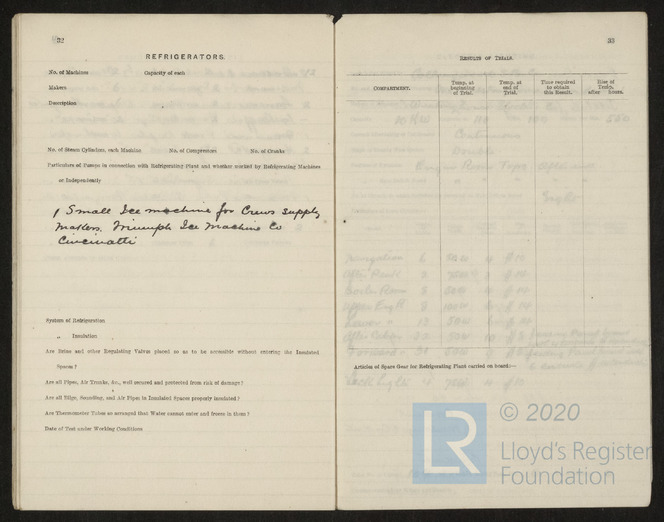 32
REFRIGERATORS.
No. of Machines Capacity of each
Makers
Description
No. of Steam Cylinders, each Machine No. of Compressors No. of Cranks
Particulars of Pumps in connection with Refrigerating Plant and whether worked by Refrigerating Machines
or Independently
1 Small Ice machine for Crews supply
makers. Triumph Ice Machine Co
Cincinatti
System of Refrigeration
„ Insulation
Are Brine and other Regulating Valves placed so as to be accessible without entering the Insulated
Spaces?
Are all Pipes, Air Trunks, &c., well secured and protected from risk of damage?
Are all Bilge, Sounding, and Air Pipes in Insulated Spaces properly insulated?
Are Thermometer Tubes so arranged that Water cannot enter and freeze in them?
Date of Test under Working Conditions
33
RESULTS OF TRIALS.
COMPARTMENT. Temp. at beginning of Trial. Temp. at end of Trial. Time required to obtain this Result. Rise of Temp. after hours.
Articles of Spare Gear for Refrigerating Plant carried on board:—
© 2020
LR
Lloyd's Register
Foundation